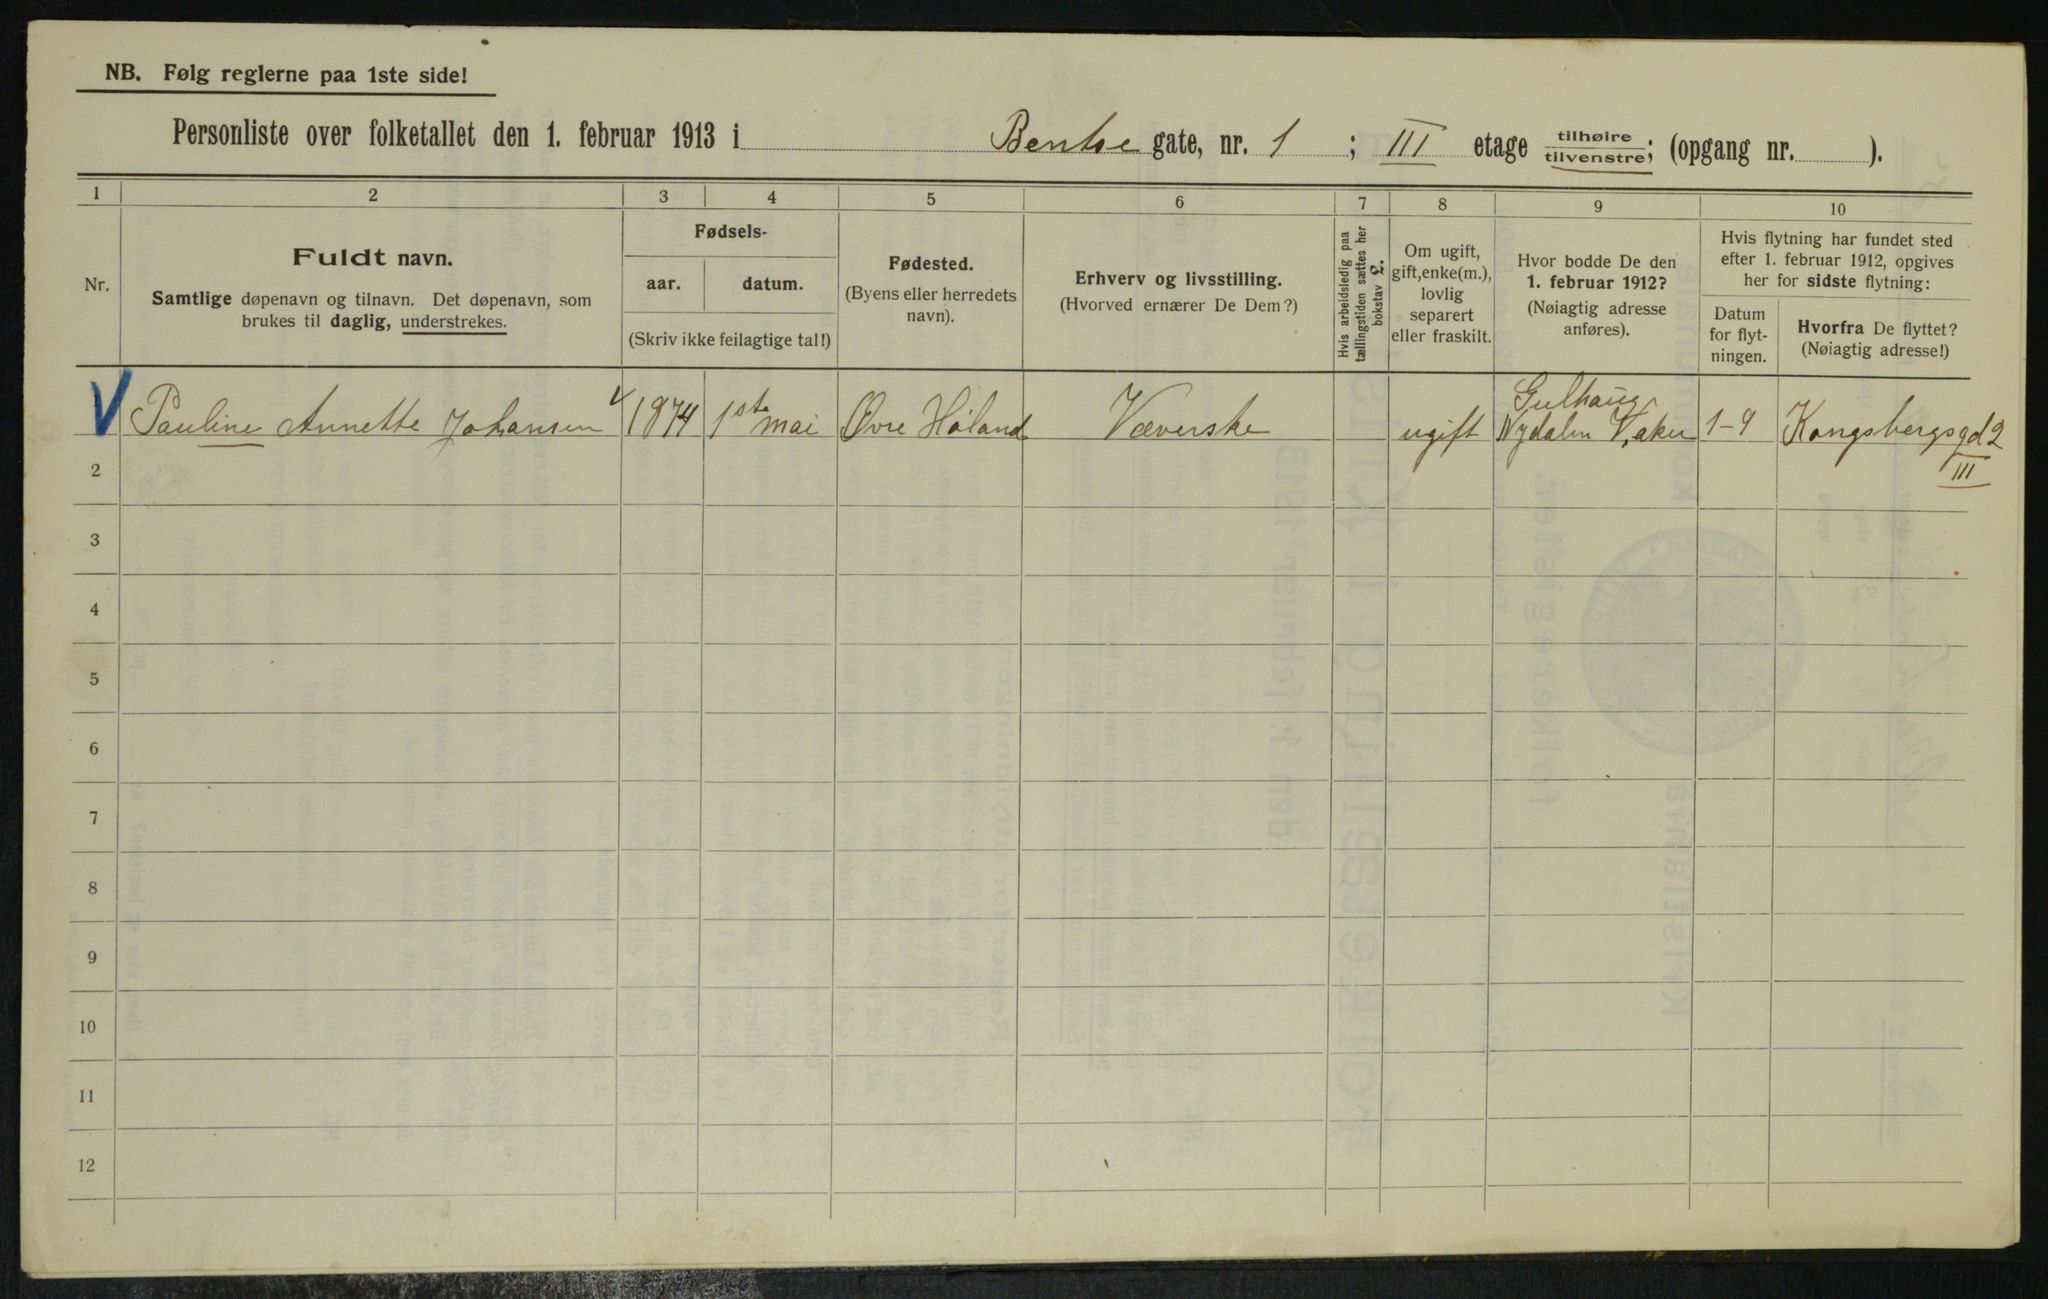 NB. Følg reglerne paa 1ste side!
Personliste over folketallet den 1. februar 1913 i Bentse gate, nr. 1 ; III etage tilhøire tilvenstre; (opgang nr. ).
1 2 3 4 5 6 7 8 9 10
Nr.
Fuldt navn.
Samtlige døpenavn og tilnavn. Det døpenavn, som
brukes til daglig, understrekes.
Fødsels-
aar. datum.
(Skriv ikke feilagtige tal!)
Fødested.
(Byens eller herredets
navn).
Erhverv og livsstilling.
(Hvorved ernærer De Dem?)
Hvis arbeidsledig paa
tællingstiden sættes her
bokstav L.
Om ugift,
gift, enke(m.),
lovlig
separert
eller fraskilt.
Hvor bodde De den
1. februar 1912?
(Nøiagtig adresse
anføres).
Hvis flytning har fundet sted
efter 1. februar 1912, opgives
her for sidste flytning:
Datum
for flyt-
ningen.
Hvorfra De flyttet?
(Nøiagtig adresse!)
Gulhaug
Pauline Annette Johansen 1874 1ste mai Øvre Høland Væverske ugift Nydalen V. aker 1-9 Kongsbergsgd 2
III
2
3
4
5
6
7
8
9
10
11
12